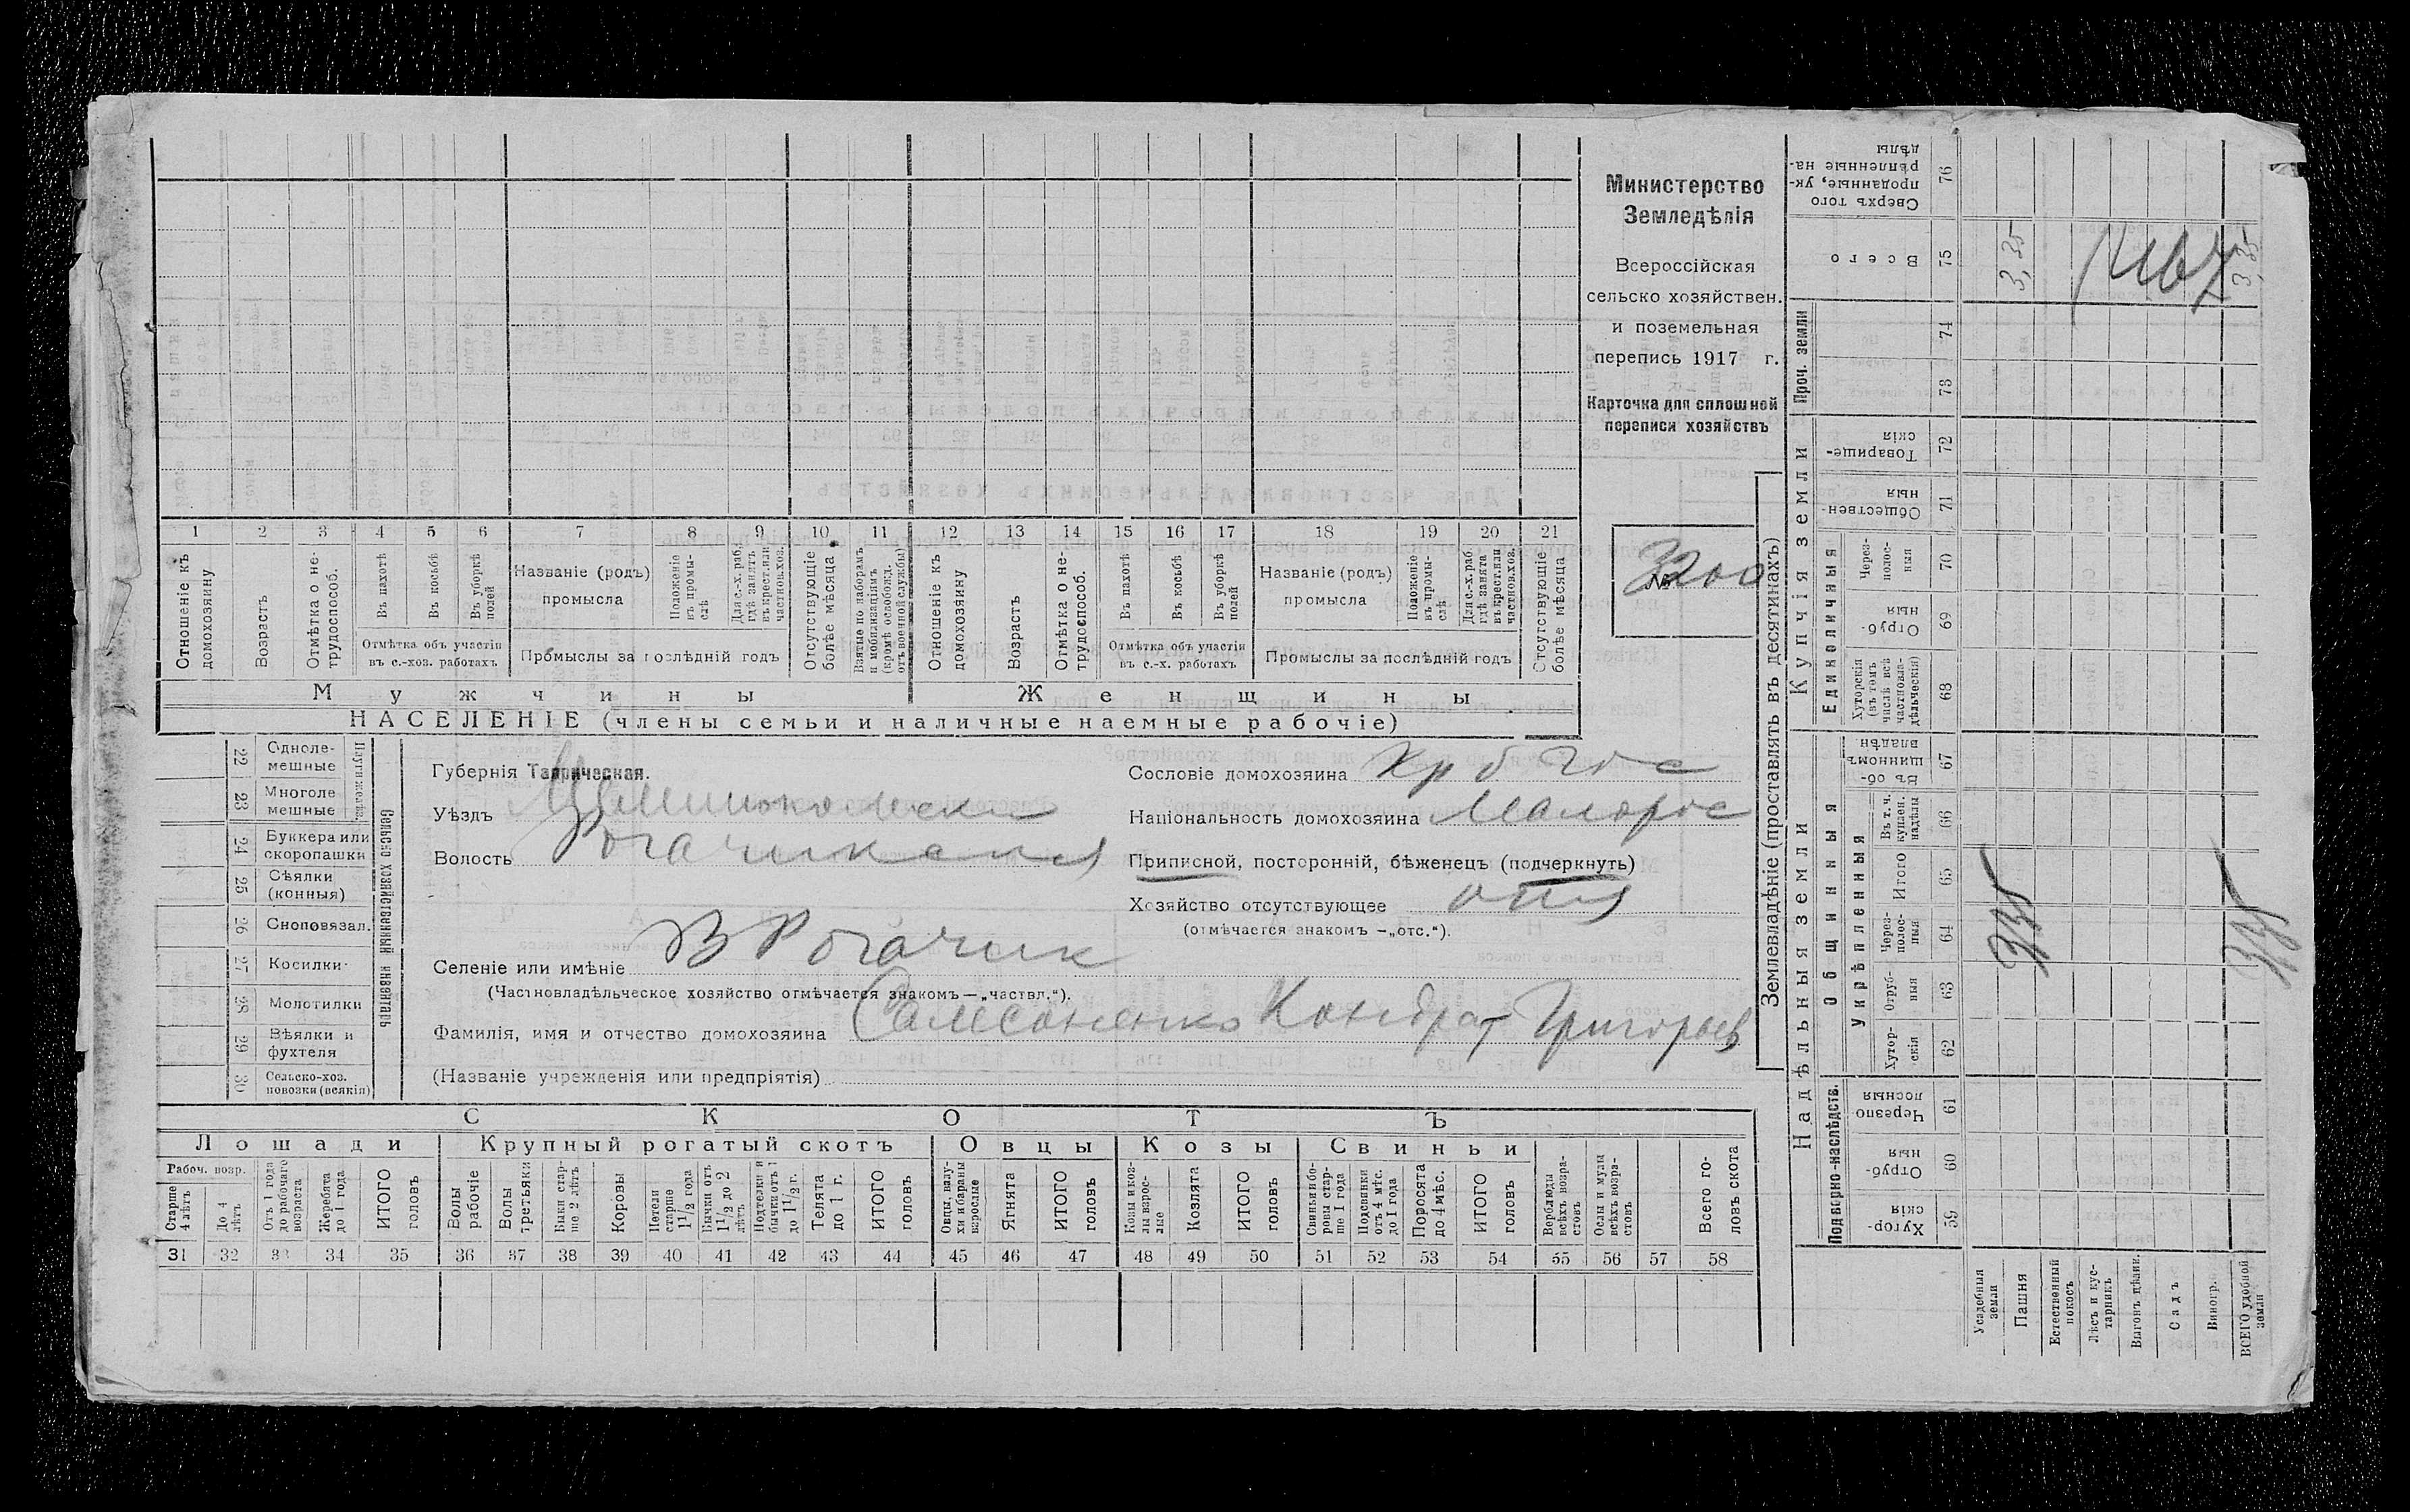 Министерство
Земледѣлія
Всероссійская
сельско хозяйствен.
и поземельная
перепись 1917 г.
Карточка для сплошной
переписи хозяйствъ
№ 3200
1 2 3 4 5 6 7 8 9 10 11 12 13 14 15 16 17 18 19 20 21
Отношеніе къ домохозяину
Возрастъ
Отмѣтка о не-трудоспособ.
Въ пахотѣ
Въ косьбѣ
Въ уборкѣ полей
Отмѣтка объ участіи
въ с.-хоз. работахъ
Названіе (родъ)
промысла
Положеніе въ промы-слѣ
Для с.-х. раб. гдѣ занятъ въ крест. или частнов. хоз.
Промыслы за послѣдній годъ
Отсутствующіе болѣе мѣсяца
Взятые по наборамъ и мобилизаціямъ (кромѣ освобожд. отъ военной службы)
Отношеніе къ домохозяину
Возрастъ
Отмѣтка о не-трудоспособ.
Въ пахотѣ
Въ косьбѣ
Въ уборкѣ полей
Отмѣтка объ участіи
въ с.-х. работахъ
Названіе (родъ)
промысла
Положеніе въ промы-слѣ
Для с.-х. раб. гдѣ занята въ крест. или частнов. хоз.
Промыслы за послѣдній годъ
Отсутствующіе болѣе мѣсяца
Мужчины Женщины
НАСЕЛЕНІЕ (члены семьи и наличные наемные рабочіе)
Сельско хозяйственный инвентарь
Плуги желѣз.
22 Одноле-мешные
23 Многоле мешные
24 Буккера или скоропашки
25 Сѣялки (конныя)
26 Сноповязал.
27 Косилки
28 Молотилки
29 Вѣялки и фухтеля
30 Сельско-хоз. повозки (всякія)
Губернія Таврическая.
Уѣздъ
Волость Рогачикская
Селеніе или имѣніе В Рогачик
(Частновладѣльческое хозяйство отмѣчается знакомъ—„частвл.“).
Фамилія, имя и отчество домохозяина Самсоненко Кондрат Григорьев
(Названіе учрежденія или предпріятія)
Сословіе домохозяина
Національность домохозяина Малорос
Приписной, посторонній, бѣженецъ (подчеркнуть)
Хозяйство отсутствующее
(отмѣчается знакомъ —„отс.“).
СКОТЪ
Лошади Крупный рогатый скотъ Овцы Козы Свиньи
Рабоч. возр.
Старше 4 лѣтъ
До 4 лѣтъ
Отъ 1 года до рабочаго возраста
Жеребята до 1 года
ИТОГО головъ
Волы рабочіе
Волы третьяки
Быки стар-ше 2 лѣтъ
Коровы
Нетели старше 1 1/2 года
Бычки отъ 1 1/2 до 2 лѣтъ
Подтелки и бычки отъ 1 до 1 1/2 г.
Телята до 1 г.
ИТОГО головъ
Овцы, валу-хи и бараны взрослые
Ягнята
ИТОГО головъ
Козы и коз-лы взрос-лые
Козлята
ИТОГО головъ
Свиньи и бо-ровы стар-ше 1 года
Подсвинки отъ 4 мѣс. до 1 года
Поросята до 4 мѣс.
ИТОГО головъ
Верблюды всѣхъ возра-стовъ
Ослы и мулы всѣхъ возра-стовъ
Всего го-ловъ скота
31 32 33 34 35 36 37 38 39 40 41 42 43 44 45 46 47 48 49 50 51 52 53 54 55 56 57 58
Землевладѣніе (проставлять въ десятинахъ)
Надѣльныя земли
Купчія земли
Проч. земли
Подворно-наслѣдств.
Общинныя
Укрѣпленныя
Единоличныя
Хутор-скія 59
Отруб-ныя 60
Черезпо-лосныя 61
Хутор-скія 62
Отруб-ныя 63
Через-полос-ныя 64
Итого 65
Въ т. ч. куплен. надѣлы 66
Въ об-щинномъ владѣн. 67
Хуторскія (въ томъ числѣ всѣ частновла-дѣльческія) 68
Отруб-ныя 69
Через-полос-ныя 70
Обществен-ныя 71
Товарище-скія 72
73
74
Всего 75
Сверхъ того проданные, ук-рѣпленные на-дѣлы 76
Усадебныя земли
Пашня
3,35
3,35
Естественный покосъ
Лѣсъ и кус-тарникъ
Выгонъ дѣлян.
Садъ
Виногр.
ВСЕГО удобной земли
3,35
3,35